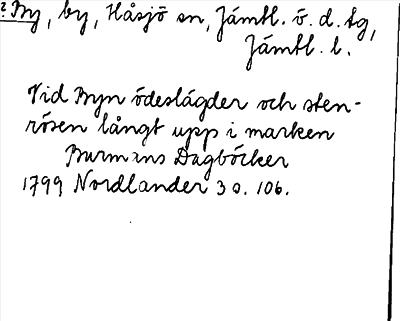 ? By, by, Håsjö sn, Jämtl. ö. d. tg,
Jämtl. l.
Vid Byn ödeslägder och sten-
rösen långt upp i marken
Burmans Dagböcker
1799 Nordlander 3 o. 106.